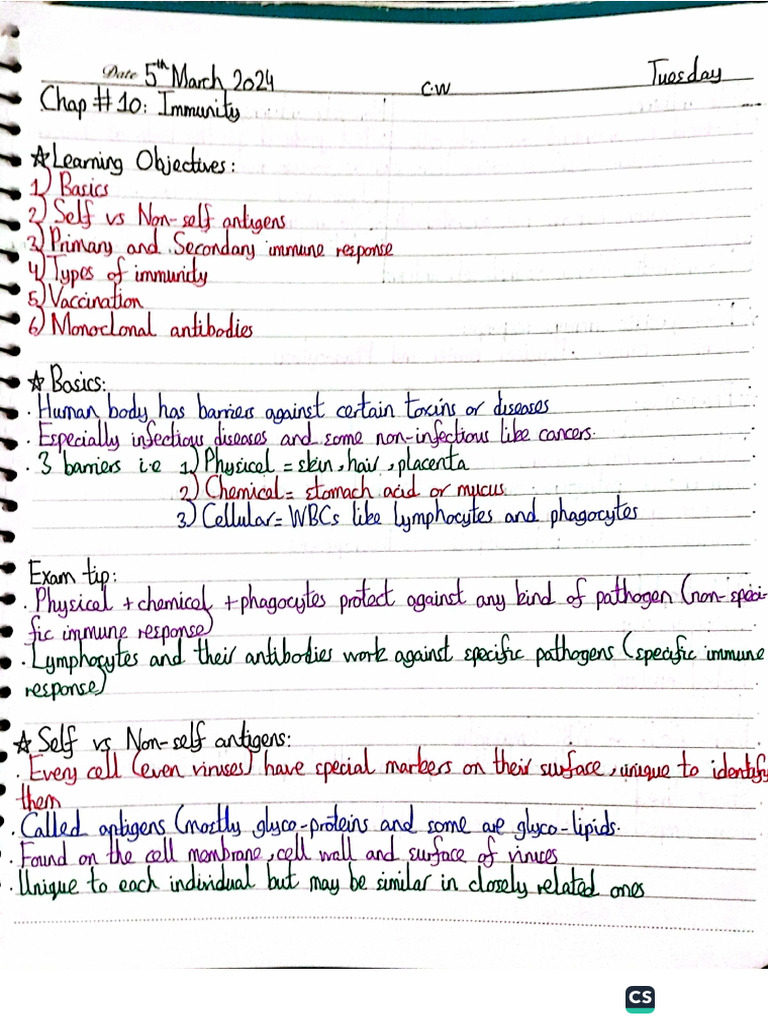 Date 5th March 2024 C.W Tuesday
Chap # 10: Immunity
☆ Learning Objectives:
1) Basics
2) Self vs Non-self antigens
3) Primary and Secondary immune response
4) Types of immunity
5) Vaccination
6) Monoclonal antibodies
☆ Basics:
. Human body has barriers against certain toxins or diseases
. Especially infectious diseases and some non-infectious like cancers.
. 3 barriers i.e 1) Physical = skin, hair, placenta
2) Chemical = stomach acid or mucus
3) Cellular = WBCs like lymphocytes and phagocytes
Exam tip:
. Physical + chemical + phagocytes protect against any kind of pathogen (non-speci-
fic immune response)
. Lymphocytes and their antibodies work against specific pathogens (specific immune
response)
☆ Self vs Non-self antigens:
. Every cell (even viruses) have special markers on their surface, unique to identify
them
. Called antigens (mostly glyco-proteins and some are glyco-lipids.
. Found on the cell membrane, cell wall and surface of viruses
. Unique to each individual but may be similar in closely related ones
CS